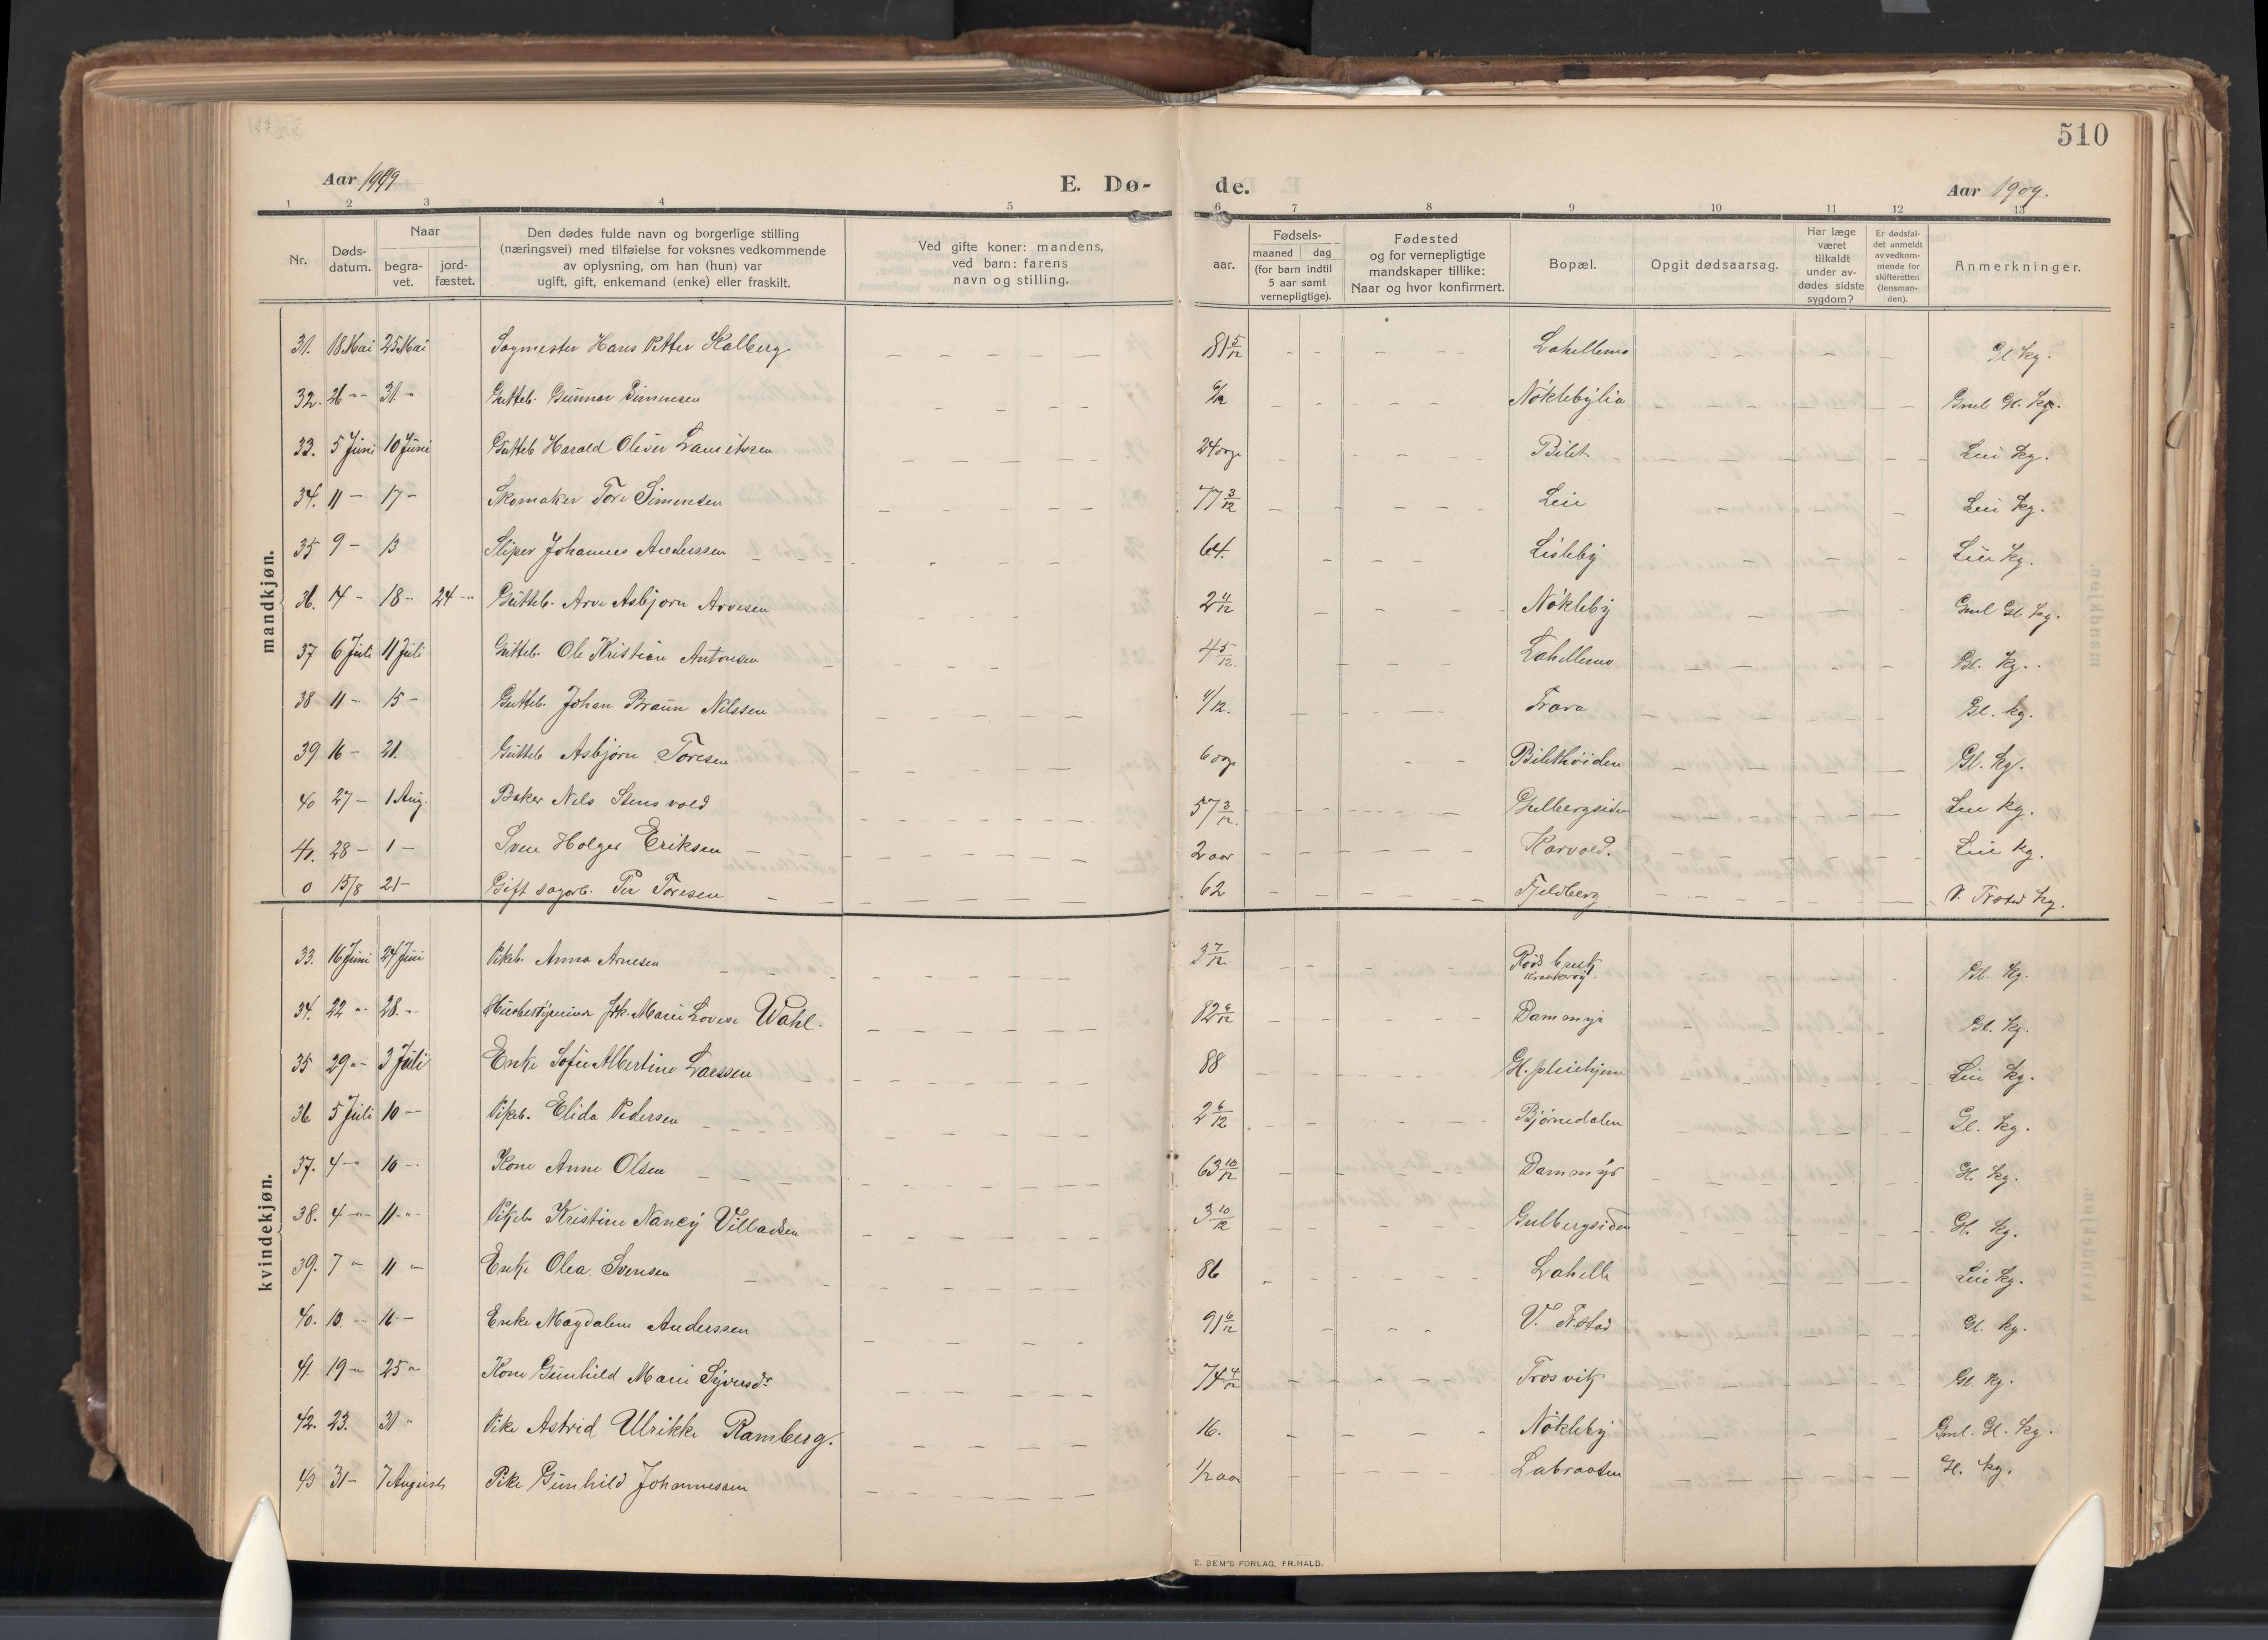 510
Aar 1909 E. Dø- de. Aar 1909.
1 2 3 4 5 6 7 8 9 10 11 12 13
Nr.
Døds-
datum.
Naar
begra-
vet.
jord-
fæstet.
Den dødes fulde navn og borgerlige stilling
(næringsvei) med tilføielse for voksnes vedkommende
av oplysning, om han (hun) var
ugift, gift, enkemand (enke) eller fraskilt.
Ved gifte koner: mandens,
ved barn: farens
navn og stilling.
aar.
Fødsels-
maaned dag
(for barn indtil
5 aar samt
vernepligtige).
Fødested
og for vernepligtige
mandskaper tillike:
Naar og hvor konfirmert.
Bopæl.
Opgit dødsaarsag.
Har læge
været
tilkaldt
under av-
dødes sidste
sygdom?
Er dødsfal-
det anmeldt
av vedkom-
mende for
skifteretten
(lensman-
den).
Anmerkninger.
mandkjøn.
31. 18 Mai 25 Mai Sagmester Hans Petter Skalberg 81 5/12 Lahellemo Gl kg.
32. 26 -- 31 - Gutteb. Gunnar Simensen 6/12 Nöklebylia Gml Gl. kg.
33. 5 Juni 10 Juni Gutteb Harald Oliver Lauritzen 24 Bilet Leie kg.
34. 11 - 17 - Skomaker Tore Simensen 77 3/12 Leie Leie kg.
35 9 - 13 Sliper Johannes Anderssen 64. Lisleby Leie kg.
36. 14 - 18 - 24 -- Gutteb. Arve Asbjørn Arvesen 2 11/12 Nökleby Gml Gl. kg.
37 6 Juli 11 Juli Gutteb. Ole Kristian Antonsen 4 5/12. Lahellemo Gl. kg.
38 11 - 15 - Gutteb. Johan Braun Nilssen 4/12. Trara Gl. kg.
39 16 - 21. Gutteb Asbjørn Toresen 6 Bilethöiden Gl. kg.
40 27 - 1 Aug. Baker Nels Stensvold 57 3/12. Gulbergsiden Leie kg.
41. 28 - 1 - Sven Holger Eriksen 2 aar Karvold. Leie kg.
0 15/8 21 - Gift sagarb. Per Toresen 62 Fjeldberg V. Frstad kg.
kvindekjøn.
33. 16 Juni 24 Juni Pikeb. Anna Arnesen 3 7/12 Röds bruk
Kraakeröy. Gl. kg.
34. 22 -- 28. -- Husbestyrerinne frk. Marie Lovise Wahl. 82 6/12 Dammyr Gl. kg.
35 29 -- 3 Juli Enke Sofie Albertine Larssen 88 Gl. pleiehjem Leie kg.
36 5 Juli 10 - Pikeb. Elida Pedersen 2 6/12 Bjørnedalen Gl. kg.
37. 4 - 10 -- Kone Anne Olsen 63 10/12 Dammyr Gl. kg.
38. 4 -- 11 -- Pikeb Kristine Nancy Villadsen 3 10/12 Gulbergsiden Gl. kg.
39. 7 - 11 - Enke Olea Svensen 86 Lahelle Leie kg.
40. 10. -- 16 - Enke Magdalene Anderssen 91 6/12 V. F.stad Gl. kg.
41. 19 - 25 - Kone Gunhild Marie Syversdr 75 4/12 Trosvik Gl. kg.
42. 23. 31 - Pike Astrid Ulrikke Ramberg. 16. Nökleby Gml. Gl. kg.
43 31 - 7 August Pike Gunhild Johannessen 1/2 aar Labraaten Gl. kg.
E. SEM'S FORLAG, FR.HALD.